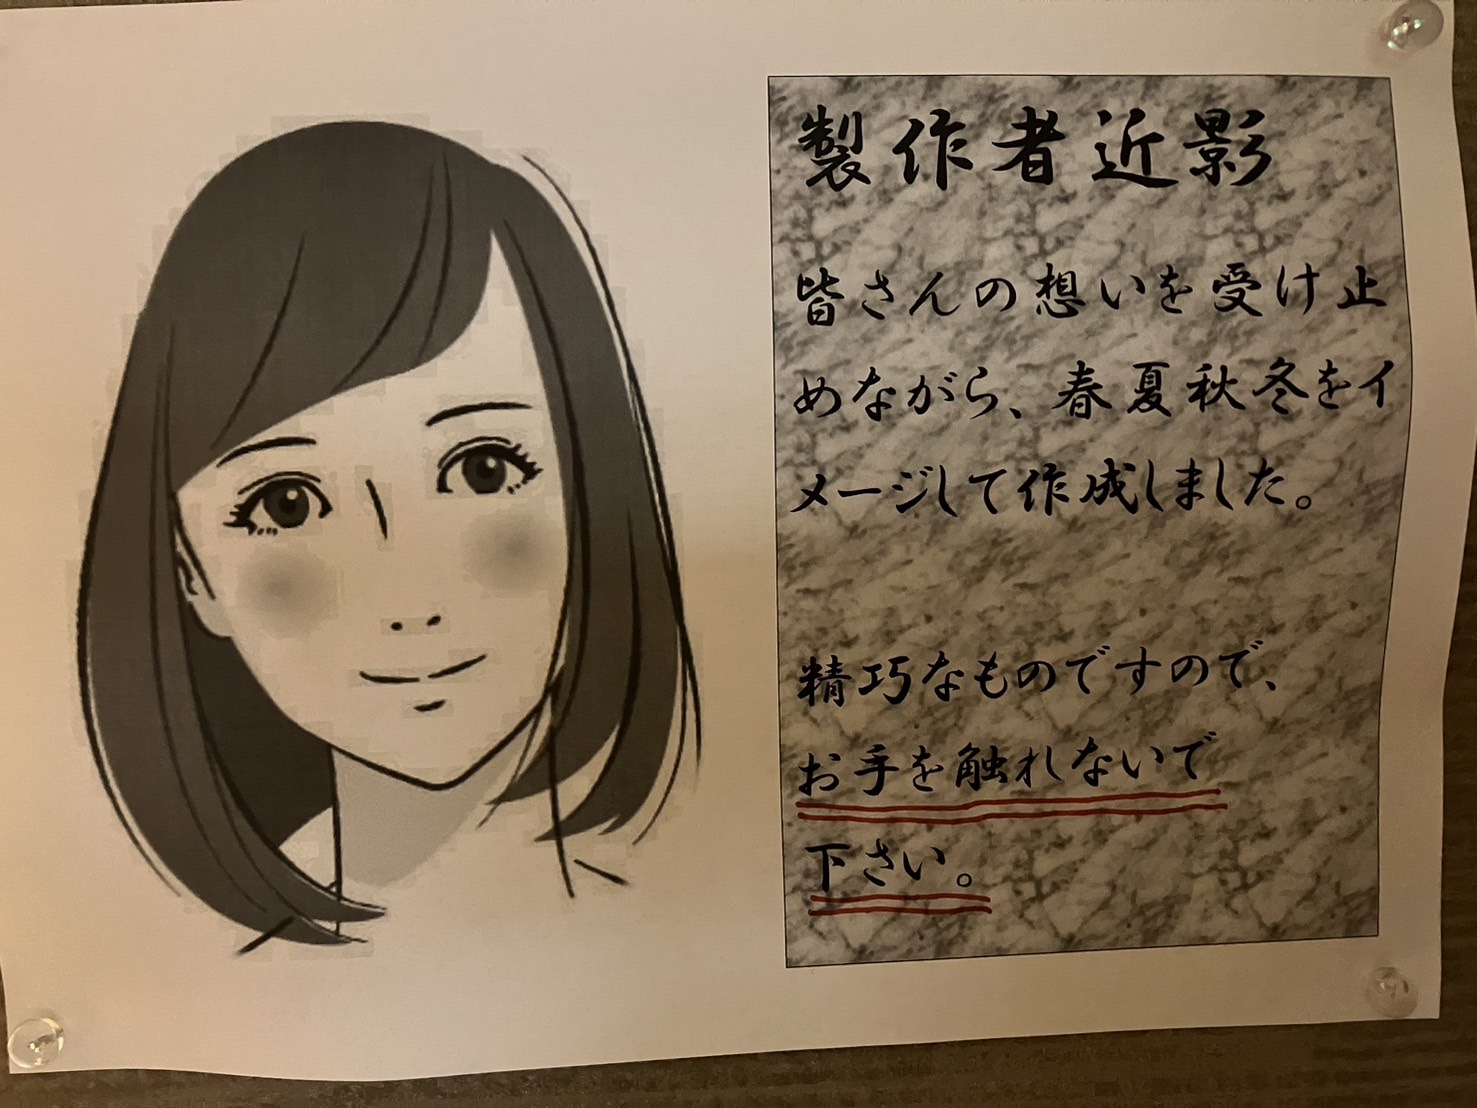 製作者近影
皆さんの想いを受け止
めながら、春夏秋冬をイ
メージして作成しました。
精巧なものですので、
お手を触れないで
下さい。